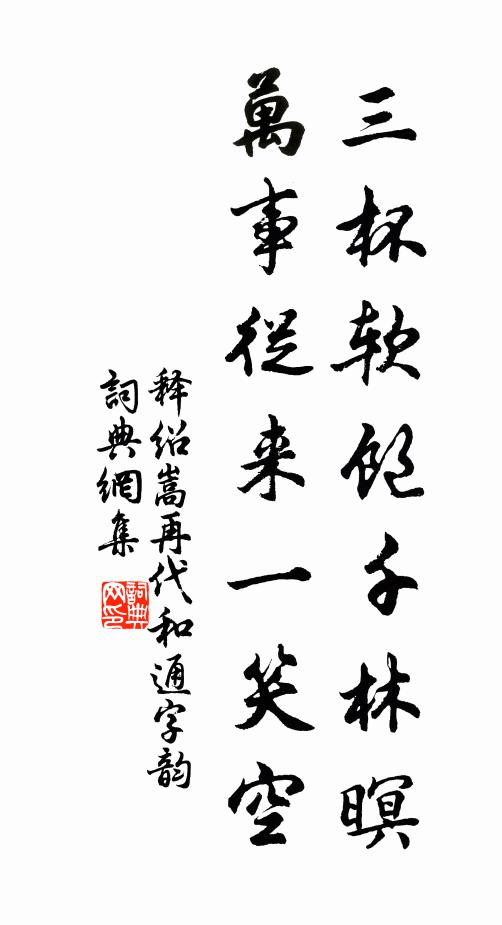 三杯软飽千林暝
萬事從来一笑空
释绍嵩再代和通字韵
詞典網集
詞典网印